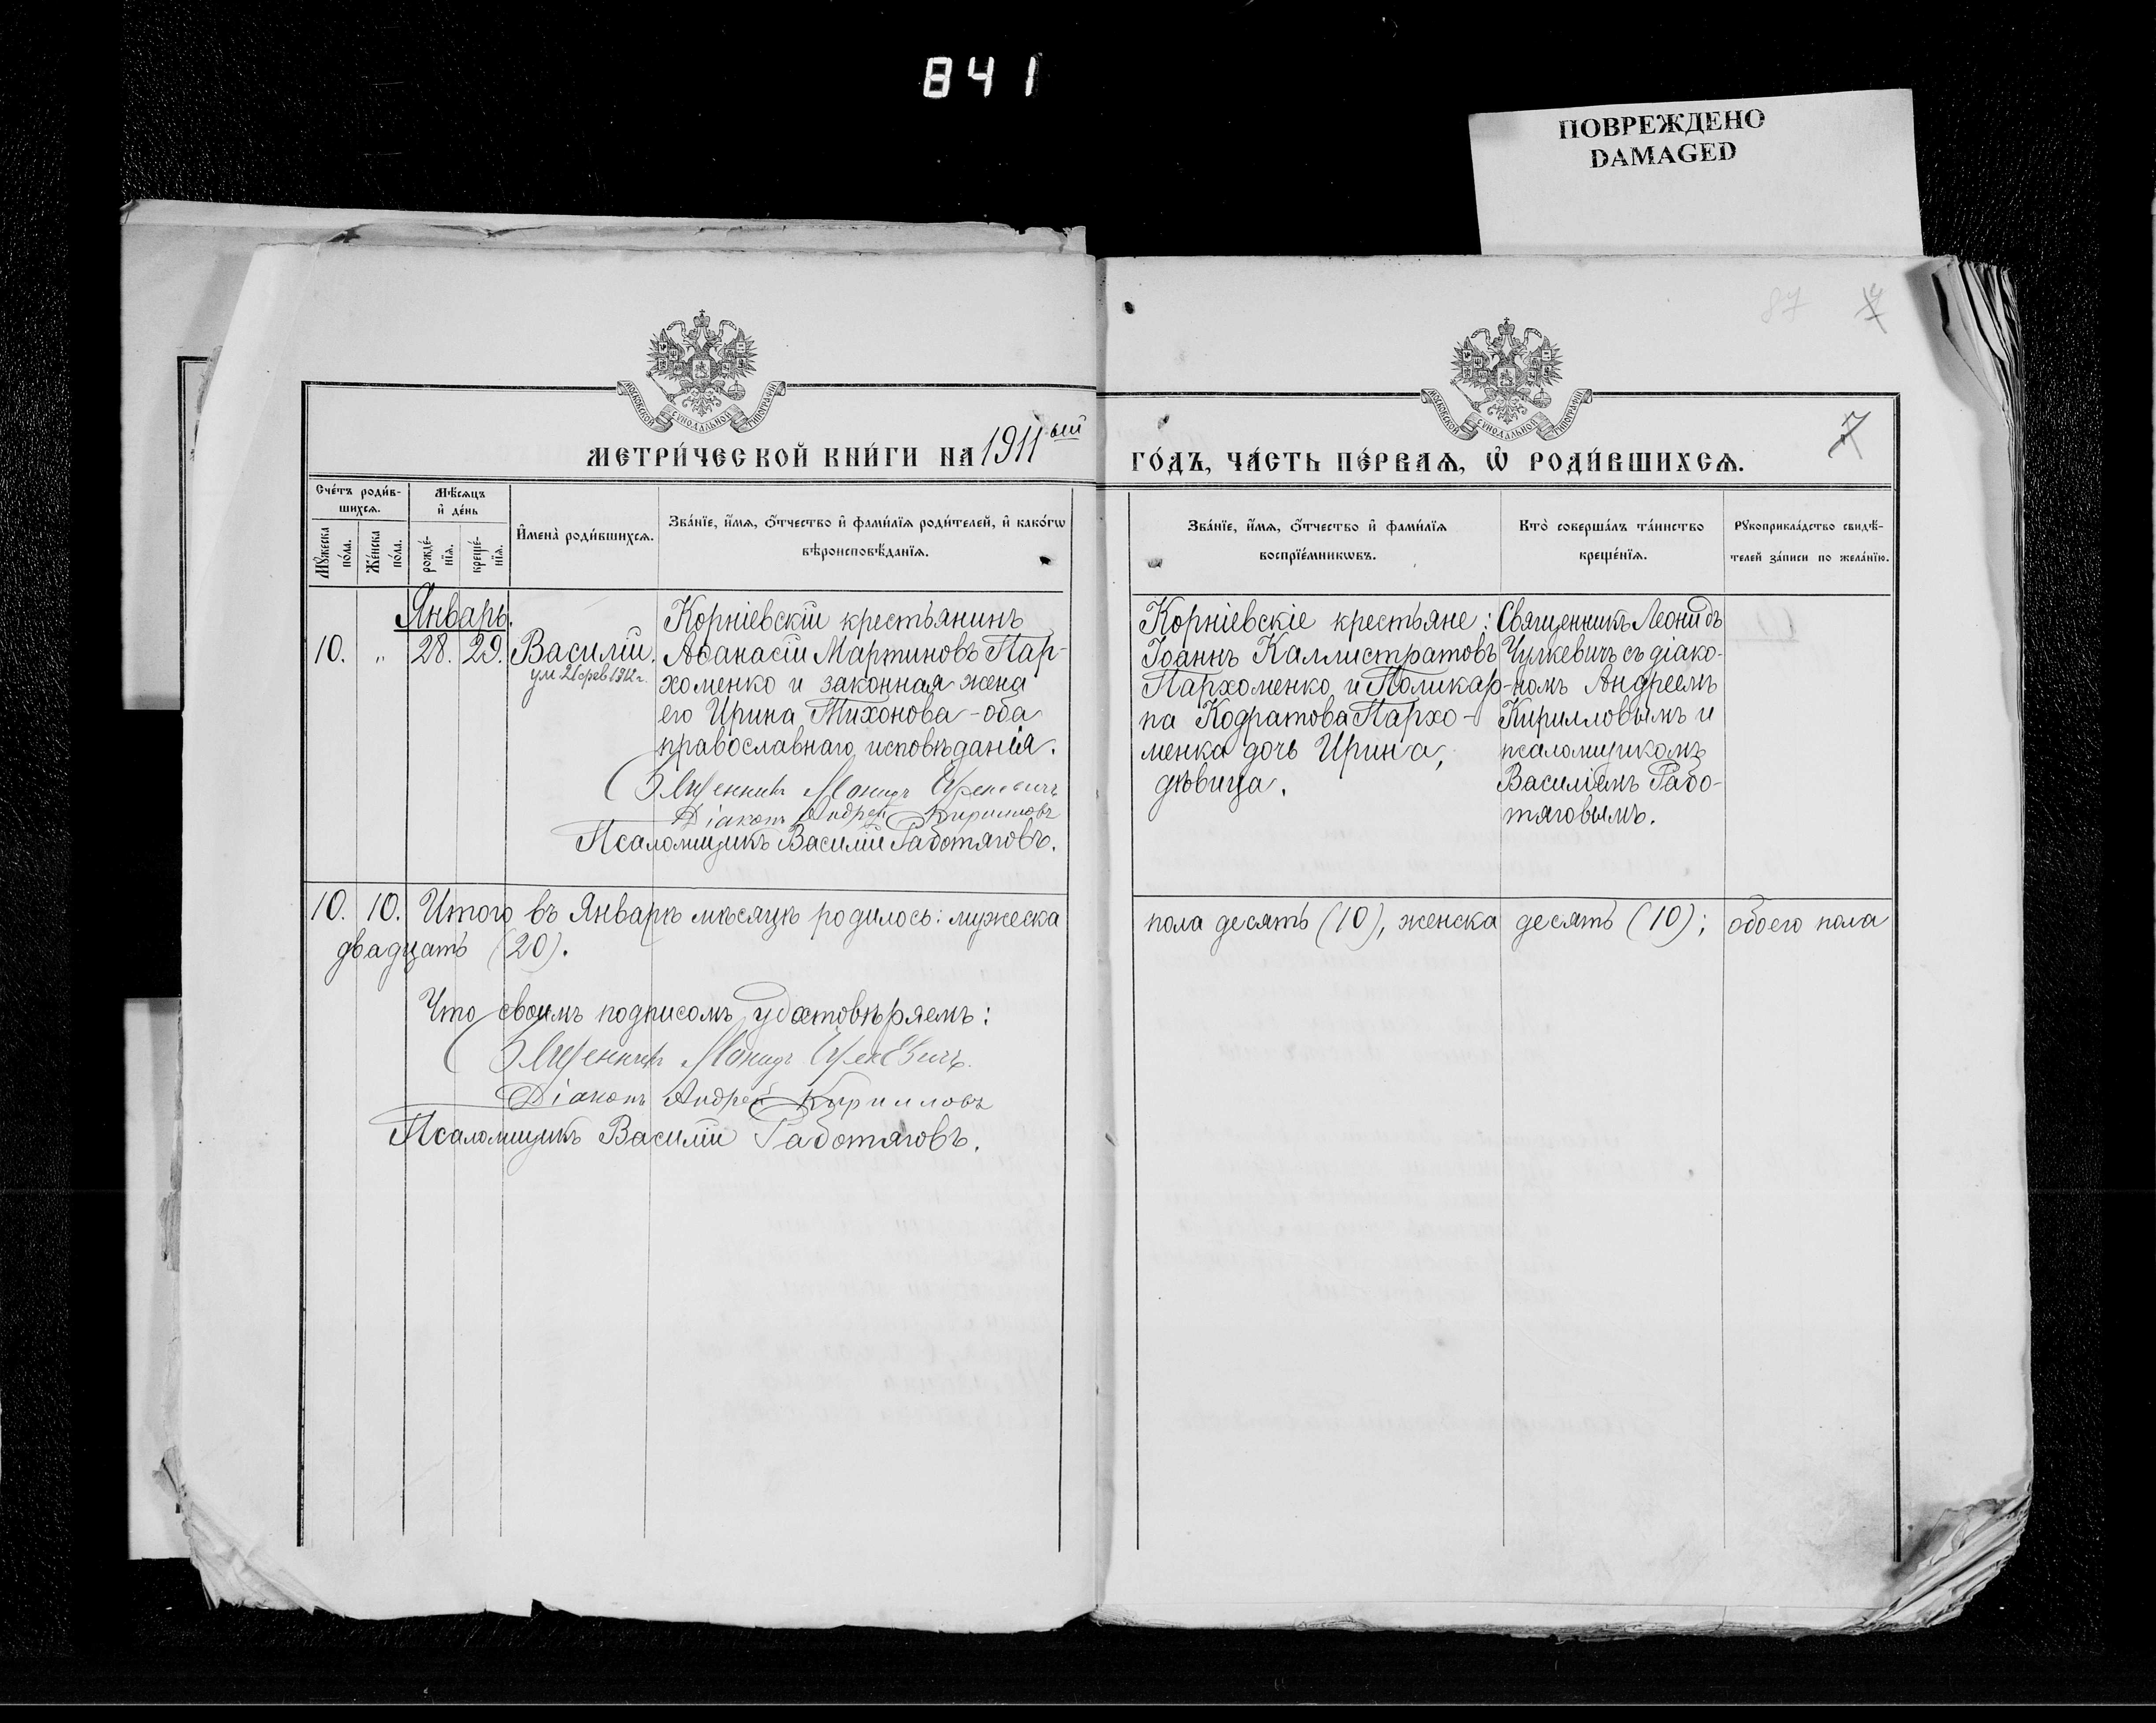 841
ПОВРЕЖДЕНО
DAMAGED
87
7
МОСКОВСКОЙ СУНОДАЛЬНОЙ ТИПОГРАФІИ
МОСКОВСКОЙ СУНОДАЛЬНОЙ ТИПОГРАФІИ
МЕТРИ́ЧЕСКОЙ КНИ́ГИ НА 1911ый
ГО́ДЪ, ЧА́СТЬ ПЕ́РВАѦ, Ѡ РОДИ́ВШИХСѦ.
7
Сче́тъ роди́в-
шихсѧ.
Мѣсѧцъ
и҆ де́нь
Мꙋжеска
по́ла.
Же́нска
по́ла.
рожде́-
нїѧ.
креще́-
нїѧ.
И҆мена̀ роди́вшихсѧ.
Зва́нїе, и҆́мѧ, ѻ҆́тчество и҆ фами́лїѧ роди́телей, и҆ како́гѡ
вѣроисповѣ́данїѧ.
Зва́нїе, и҆́мѧ, ѻ҆́тчество и҆ фами́лїѧ
воспрїе́мникѡвъ.
Кто̀ соверша́лъ та́инство
креще́нїѧ.
Рꙋкоприкла́дство свидѣ́-
телей за́писи по жела́нїю.
Январь.
10. „ 28. 29. Василій.
ум 21 фев 1912 г.
Корніевскій крестьянинъ
Аѳанасій Мартиновъ Пар-
хоменко и законная жена
его Ирина Тихонова - оба
православнаго исповѣданія.
Священникъ Леонидъ Чулкевичъ
Діаконъ Андрей Кирилловъ
Псаломщикъ Василій Работяговъ.
Корніевскіе крестьяне:
Іоаннъ Каллистратовъ
Пархоменко и Поликар-
па Кодратова Пархо-
менка дочь Ирина,
дѣвица.
Священникъ Леонидъ
Чулкевичъ съ діако-
номъ Андреемъ
Кирилловымъ и
псаломщикомъ
Василіемъ Рабо-
тяговымъ.
10. 10. Итого въ Январѣ мѣсяцѣ родилось: мужеска
пола десять (10), женска десять (10); обоего пола
двадцать (20).
Что своимъ подписомъ удостовѣряемъ:
Священникъ Леонидъ Чулкевичъ.
Діаконъ Андрей Кирилловъ
Псаломщикъ Василій Работяговъ.